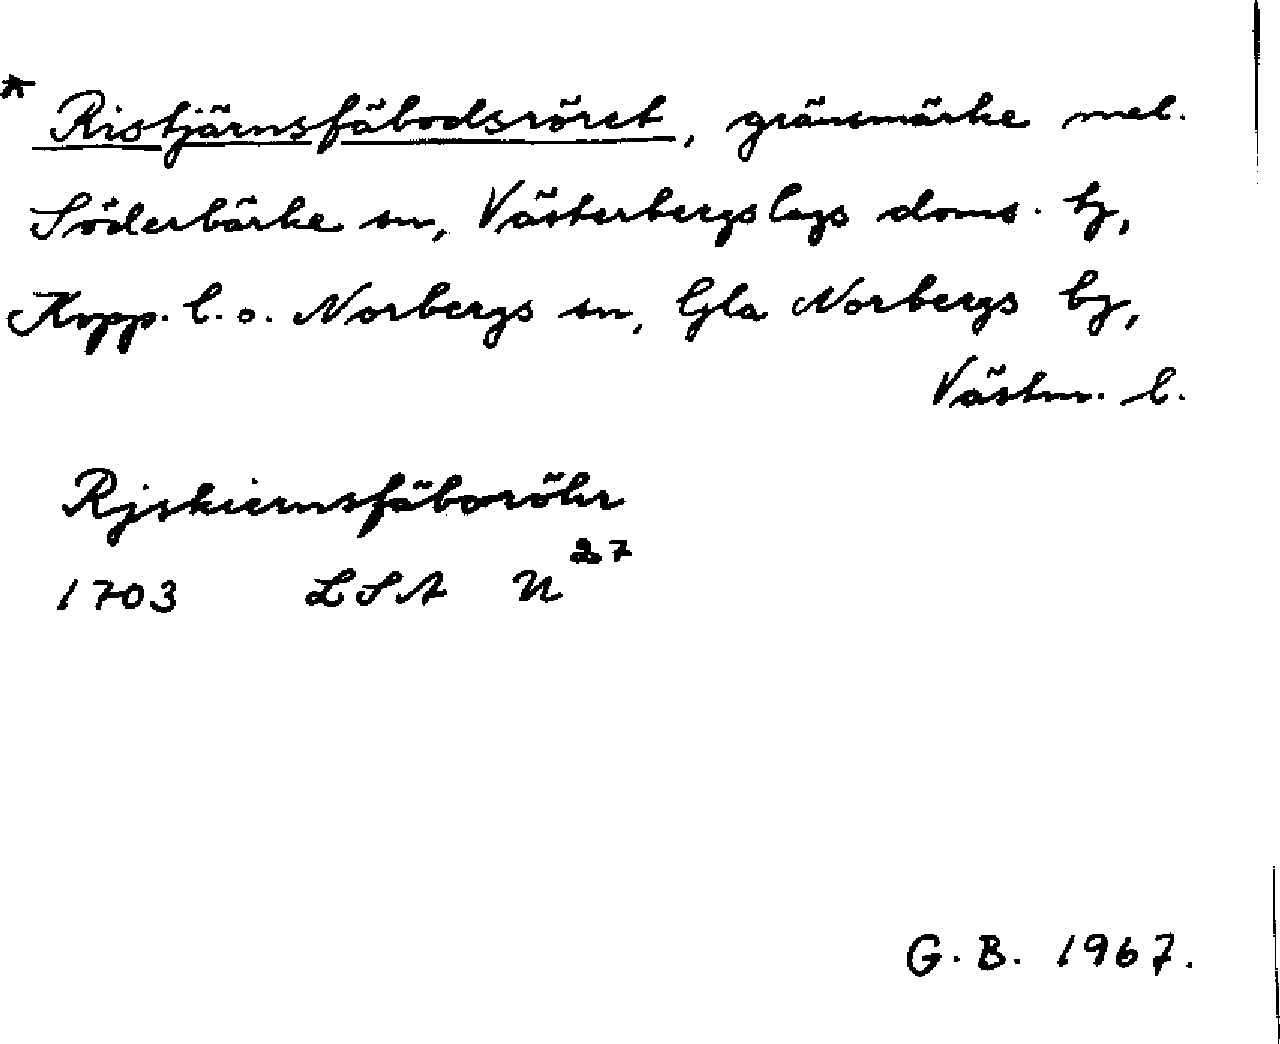 * Ristjärnsfäbodsröret, gränsmärke mel.
Söderbärke sn, Västerbergslags doms. bg,
Kopp. l. o. Norbergs sn, Gla Norbergs bg,
Västm. l.
Rjskiernsfäboröhr
1703 LSA U 27
G. B. 1967.